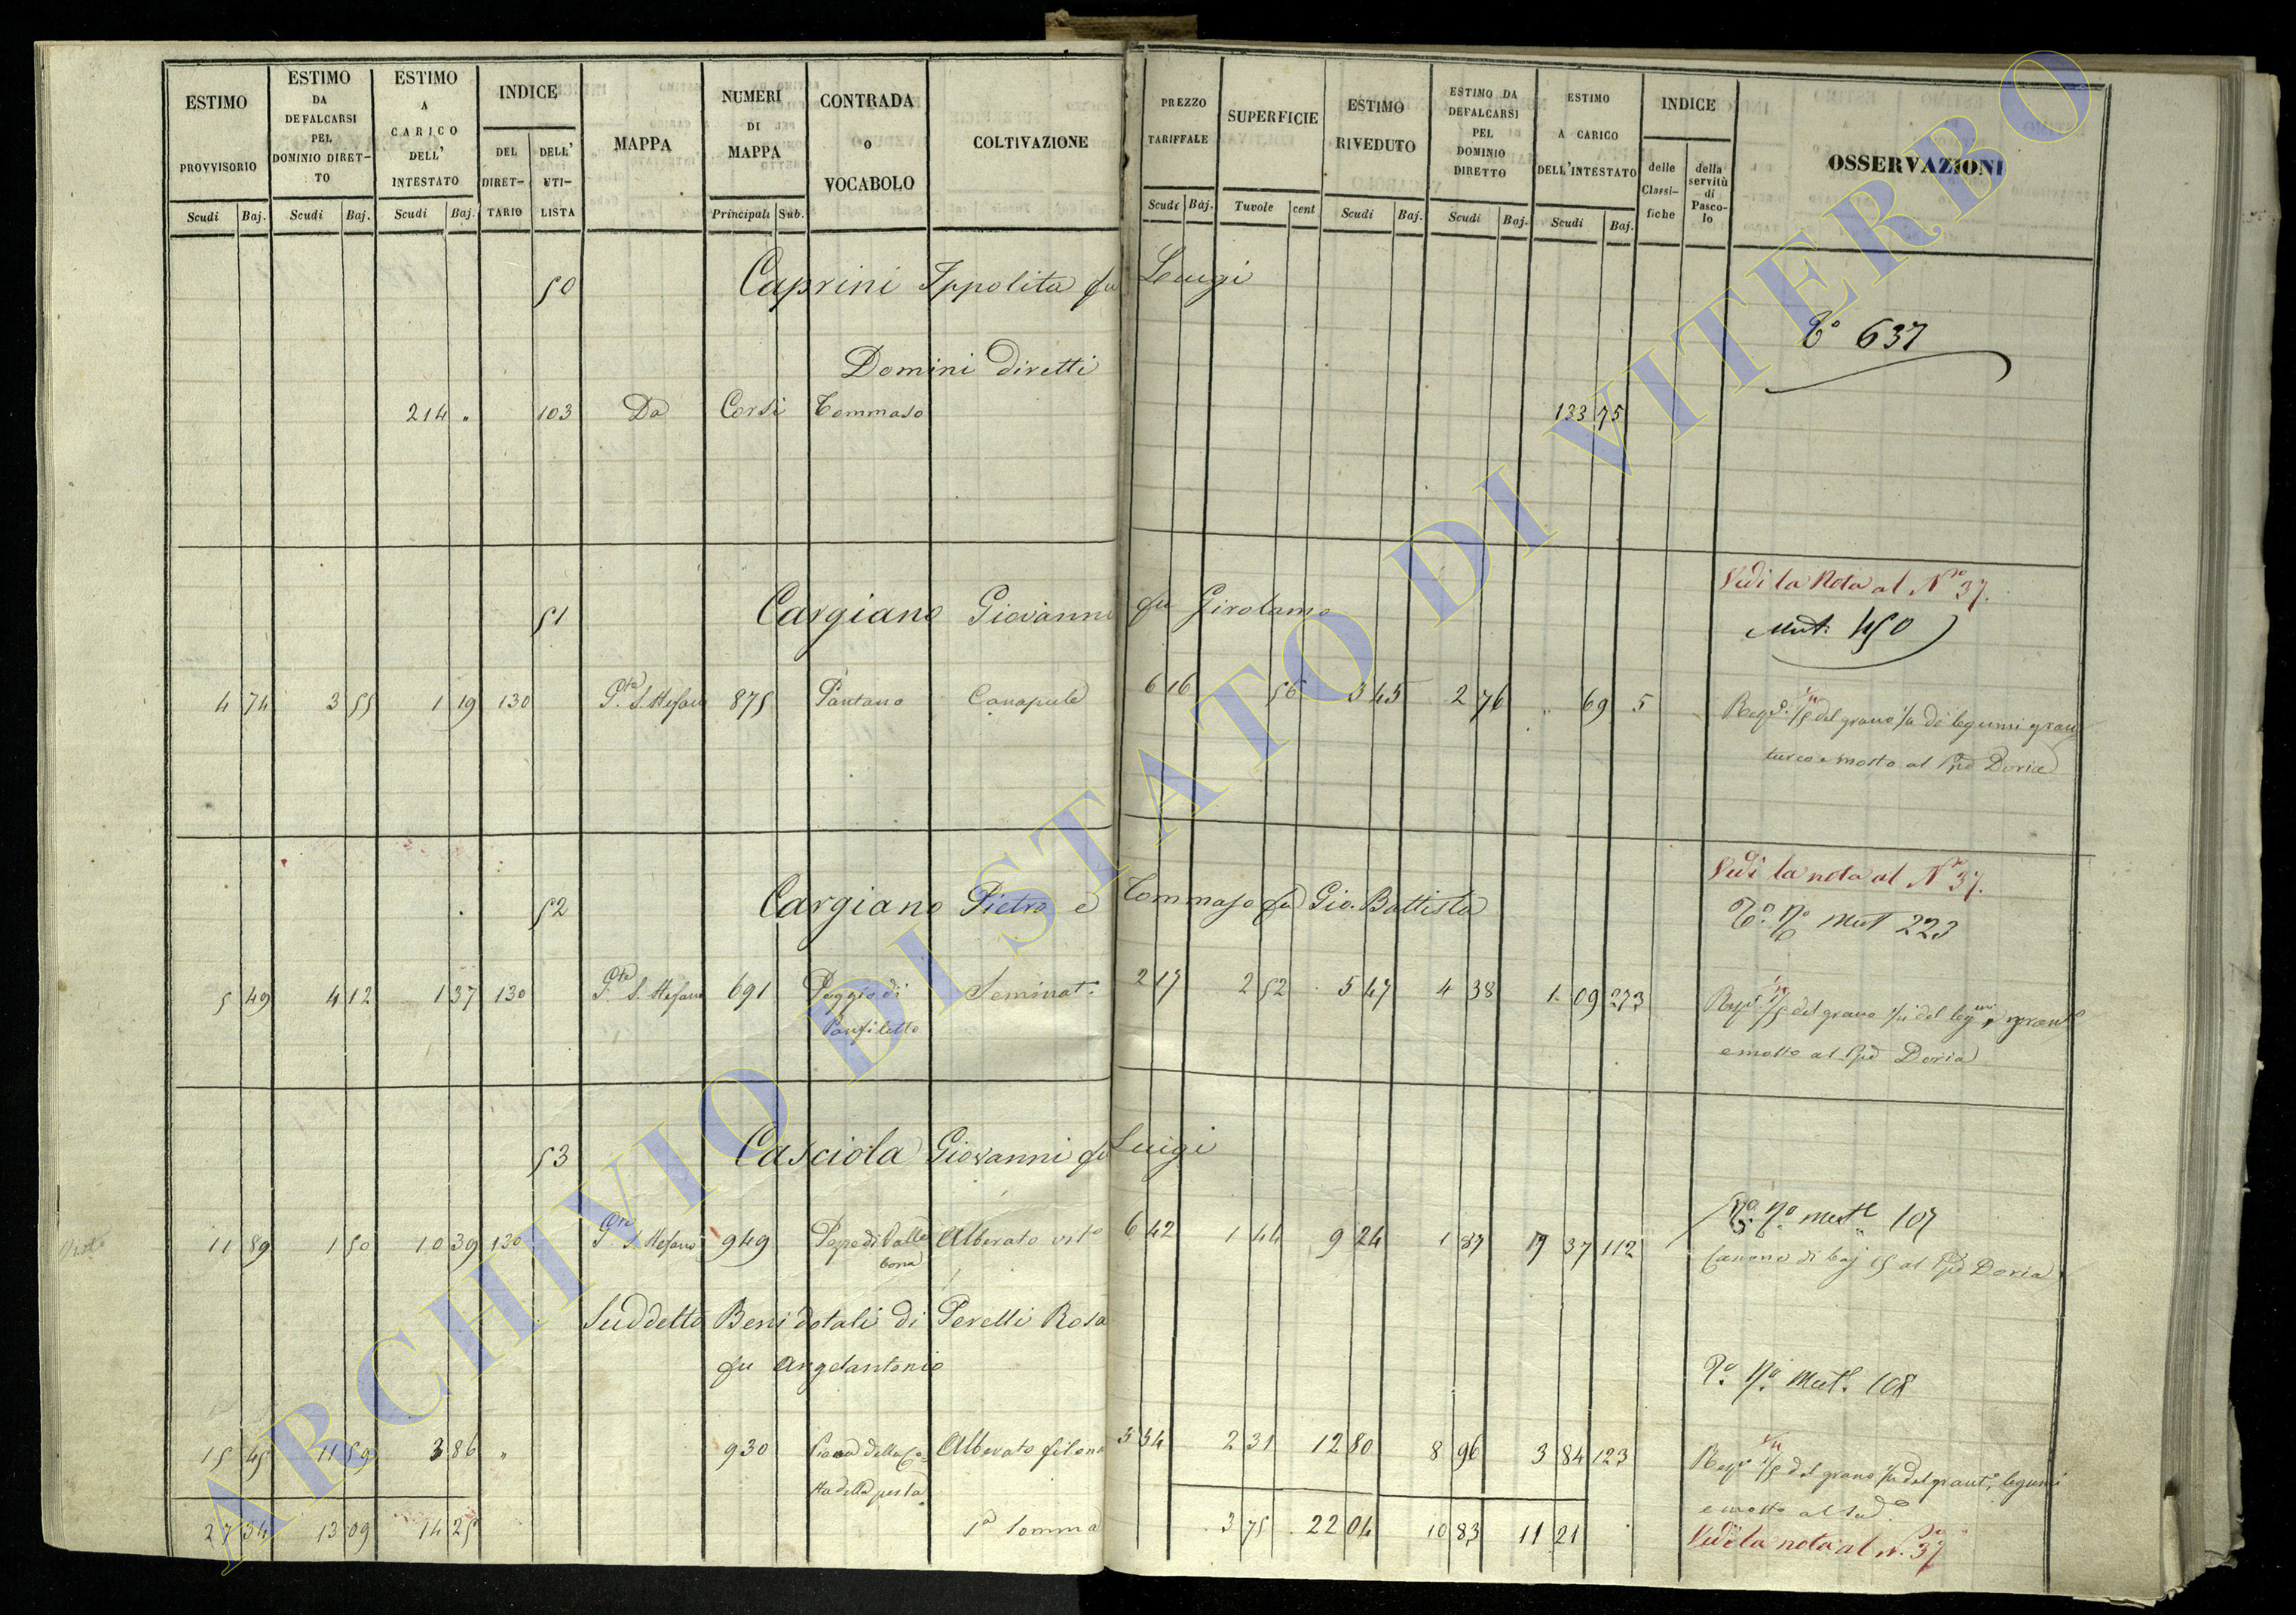 ESTIMO PROVVISORIO Scudi Baj.
ESTIMO DA DEFALCARSI PEL DOMINIO DIRETTO Scudi Baj.
ESTIMO A CARICO DELL' INTESTATO Scudi Baj.
INDICE DEL DIRETTARIO DELL' UTILISTA
MAPPA
NUMERI DI MAPPA Principali Sub.
CONTRADA O VOCABOLO
COLTIVAZIONE
PREZZO TARIFFALE Scudi Baj.
SUPERFICIE Tavole cent
ESTIMO RIVEDUTO Scudi Baj.
ESTIMO DA DEFALCARSI PEL DOMINIO DIRETTO Scudi Baj.
ESTIMO A CARICO DELL'INTESTATO Scudi Baj.
INDICE delle Classifiche della servitù di Pascolo
OSSERVAZIONI
50 Caprini Ippolita fu Luigi
To 637
Domini diretti
214 " 103 Da Corsi Tommaso 133 75
Vedi la Nota al No 37.
51 Cargiano Giovanni fu Girolamo
Mut: 450
4 74 3 55 1 19 130 Pte S. Stefano 875 Pantano Canapule 6 16 56 3 45 2 76 " 69 5 Rispa 1/5 del grano 1/4 de legumi gran
turco e mosto al Ppe Doria
Vedi la nota al No 37.
52 Cargiano Pietro e Tommaso fu Gio. Battista
To No Mut 223
5 49 4 12 1 37 130 Pte S. Stefano 691 Poggio di Panfiletto Seminato 2 17 2 52 5 47 4 38 1 09 273 Rispa 1/5 del grano del legmi, grant
e mosto al Ppe Doria
53 Casciola Giovanni fu Luigi
To No mute 107
11 89 1 50 10 39 130 Pte S. Stefano 949 Pepe di Valle bona Alberato vito 6 42 1 44 9 24 1 87 7 37 112 Canone di baj 15 al Ppe Doria
Suddetto Beni dotali di Perelli Rosa
fu Angelantonio
To No Mute 108
15 45 11 59 3 86 " 930 Alberato filona 5 54 2 31 12 80 8 96 3 84 123 Rispa 1/5 del grano 1/4 del granto, legumi
e mosto al Sudo
27 34 13 09 14 25 1a Somma 3 75 22 04 10 83 11 21 Vedi la nota al No 37
ARCHIVIO DI STATO DI VITERBO